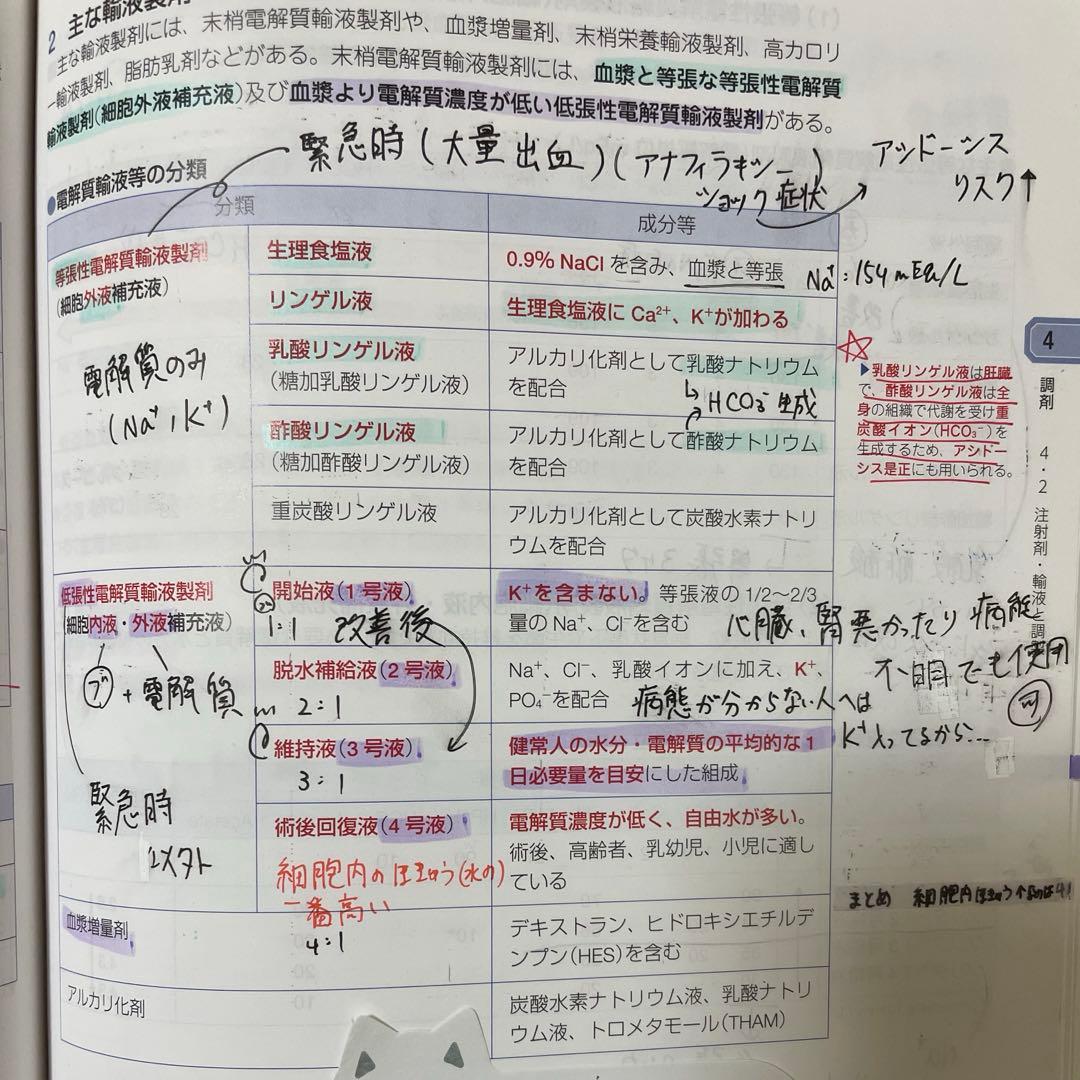 2 主な輸液製剤
主な輸液製剤には、末梢電解質輸液製剤や、血漿増量剤、末梢栄養輸液製剤、高カロリ
ー輸液製剤、脂肪乳剤などがある。末梢電解質輸液製剤には、血漿と等張な等張性電解質
輸液製剤(細胞外液補充液)及び血漿より電解質濃度が低い低張性電解質輸液製剤がある。
緊急時(大量出血)(アナフィラキシー)
ショック症状
アシドーシス
リスク↑
●電解質輸液等の分類
分類
成分等
等張性電解質輸液製剤
(細胞外液補充液)
電解質のみ
(Na⁺, K⁺)
生理食塩液
0.9% NaCl を含み、血漿と等張
Na⁺:154mEq/L
リンゲル液
生理食塩液に Ca²⁺、K⁺が加わる
乳酸リンゲル液
(糖加乳酸リンゲル液)
アルカリ化剤として乳酸ナトリウム
を配合
↳ HCO₃⁻生成
酢酸リンゲル液
(糖加酢酸リンゲル液)
アルカリ化剤として酢酸ナトリウム
を配合
重炭酸リンゲル液
アルカリ化剤として炭酸水素ナトリ
ウムを配合
▶乳酸リンゲル液は肝臓
で、酢酸リンゲル液は全
身の組織で代謝を受け重
炭酸イオン(HCO₃⁻)を
生成するため、アシドー
シス是正にも用いられる。
4
調剤
4・2 注射剤・輸液と調
低張性電解質輸液製剤
(細胞内液・外液補充液)
ブ + 電解質
緊急時
以外
開始液(1 号液)
1:1 改善後
K⁺を含まない。等張液の 1/2〜2/3
量の Na⁺、Cl⁻を含む
心臓、腎悪かったり 病態
不明でも使用
可
脱水補給液(2 号液)
2:1
Na⁺、Cl⁻、乳酸イオンに加え、K⁺、
PO₄⁻を配合
病態が分からない人へは
K⁺入ってるから…
維持液(3 号液)
3:1
健常人の水分・電解質の平均的な 1
日必要量を目安にした組成
術後回復液(4 号液)
細胞内のほじゅう(水の)
一番高い
4:1
電解質濃度が低く、自由水が多い。
術後、高齢者、乳幼児、小児に適し
ている
まとめ 細胞内ほじゅう
血漿増量剤
デキストラン、ヒドロキシエチルデ
ンプン(HES)を含む
アルカリ化剤
炭酸水素ナトリウム液、乳酸ナトリ
ウム液、トロメタモール(THAM)